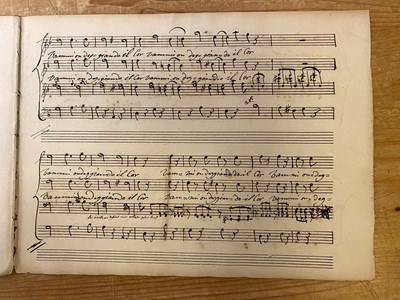 Vammi ondeggiando il Cor Vammi ondeggiando il Cor
Vammi ondeggiando il Cor Vammi ondeggiando il Cor
Vammi ondeggiando il Cor Vammi ondeggiando il Cor Vammi ondeg-
Vammi ondeggiando il Cor Vammi ondeggiando il Cor Vammi ondeg-